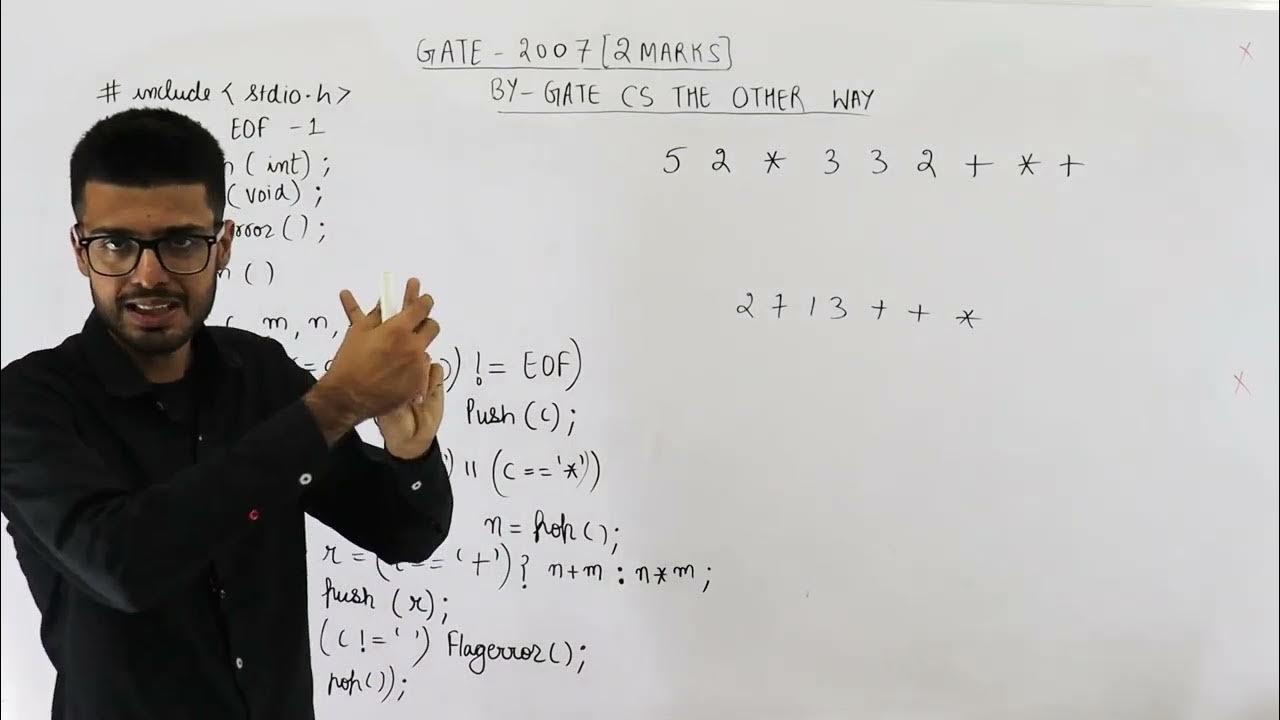 GATE - 2007 [2 MARKS]
BY - GATE CS THE OTHER WAY
# include < stdio.h >
EOF -1
(int);
(void);
();
()
m, n,
) != EOF)
Push (c);
') || (c == '*'))
n = pop();
r = ( == '+') ? n+m : n*m ;
push (r);
(c != ' ') Flagerror();
pop());
5 2 * 3 3 2 + * +
2 7 1 3 + + *
x
x